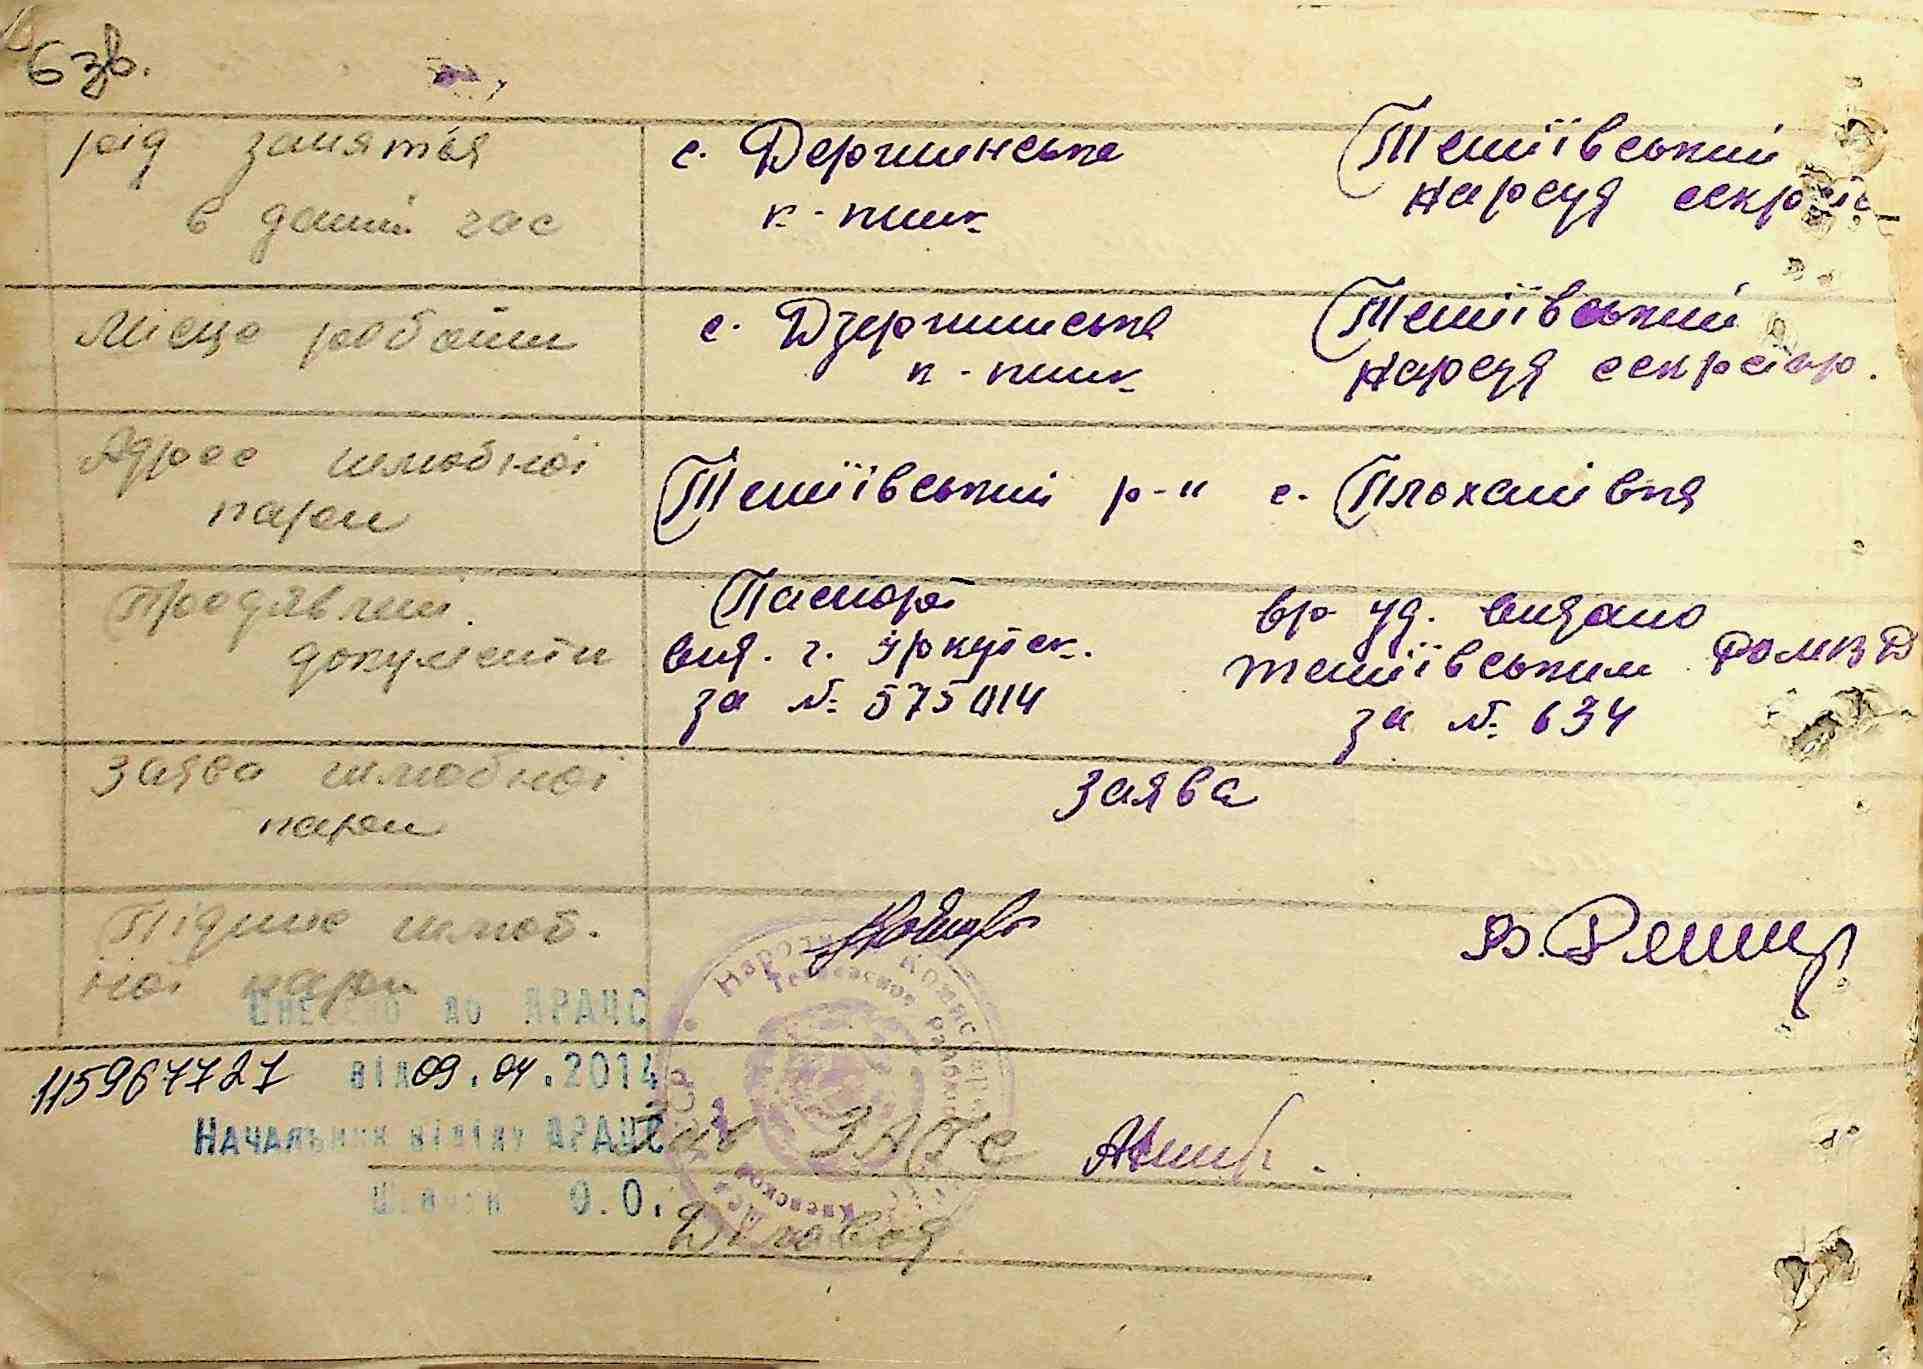 6 зв.
рід заняття
в даний час
с. Держинська
к-пник
Тетіївський
нарсуд секрет
Місце роботи
с. Дзержинська
к-пник
Тетіївський
нарсуд секретар.
Адрес шлюбної
пари
Тетіївський р-н с. Плоханівка
Предявлені
документи
Паспорт
вид. г. Іркутск.
за № 575014
вр уд. видано
тетіївським РОМВД
за № 634
Заява шлюбної
пари
заява
Підпис шлюб.
ної пари
Внесено до ДРАЦС
115967727 від 09.04.2014
Начальник відділу ДРАЦС
О.О.
Зав ЗАГС
Діловод